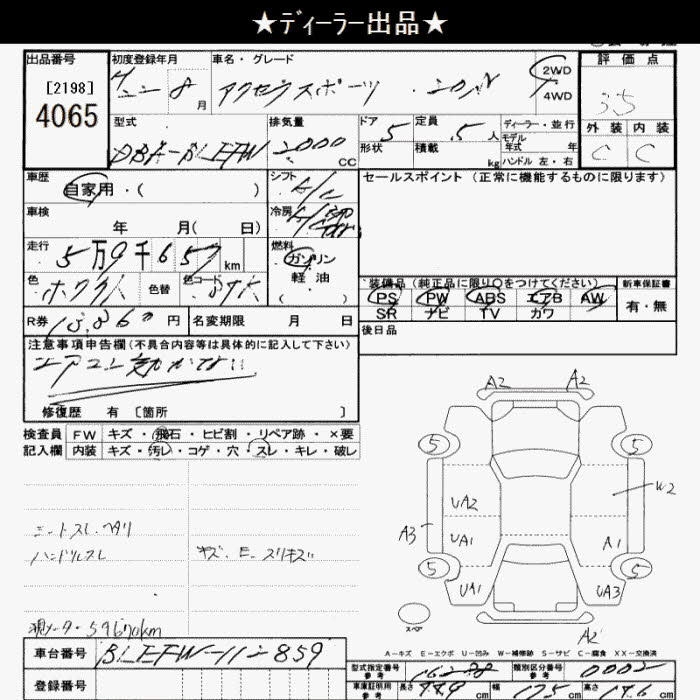 ★ディーラー出品★
出品番号
[2198]
4065
初度登録年月
8 月
車名・グレード
アクセラスポーツ
2WD
4WD
評価点
3.5
外装 内装
C C
型式
DBA-BLEFW
排気量
2000 CC
ドア 5
形状
定員 5人
積載 kg
ディーラー・並行
モデル年式 年
ハンドル 左・右
車歴
自家用・( )
シフト
冷房
セールスポイント (正常に機能するものに限ります)
車検
年 月( 日)
走行
5万9千657 km
燃料
ガソリン
軽油
( )
色
色替
色コード
装備品 (純正品に限り○をつけてください)
新車保証書
PS PW ABS エアB AW
SR ナビ TV カワ
有・無
R券 円
名変期限 月 日
後日品
注意事項申告欄(不具合内容等は具体的に記入して下さい)
修復歴 有 [箇所 ]
検査員
記入欄
FW キズ・飛石・ヒビ割・リペア跡・×要
内装 キズ・汚レ・コゲ・穴・スレ・キレ・破レ
シートスレ・ヘタリ
ハンドルスレ
キズ. E. スリキズ
現メーター・59670km
A2 A2
5 5
UA2 W2
A3 UA1 A1
5 5
UA1 UA3
スペア
A2
A-キズ E-エクボ U-凹み W-補修跡 S-サビ C-腐食 XX-交換済
車台番号
BLEFW-112859
登録番号
型式指定番号 参考 16238
類別区分番号 参考 0002
車庫証明用 参考 長さ 449 cm 幅 175 cm 高さ 146 cm